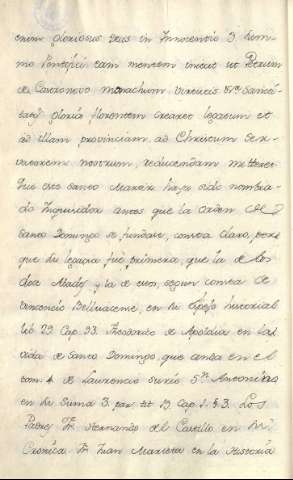 enim gloriosus Deus in Innocentio 3 summi
mo Pontifici eam mentem inieut ut Petrum
de Castronovo monachum, virtutis et sancti-
tatis gloria florentem crearet legatum et
ad illam provinciam, ad Christum Ser-
vatorem nostrum, reducendam mitteret
fue este Santo Martir haver sido nombra-
do Inquisidor antes que la Orden de
Santo Domingo se fundase, consta claro, porq
que su legacia fue primera, que la de los
doce Abades y la de estos, segun consta de
Vincencio Belluacense, en su Espejo historial
lib 29 Cap 93. Theodorico de Apoldia en la
vida de Santo Domingo, que anda en el
tom. 4 de Laurencio Surio, Sn Antonino
en su Suma 3. par tit 19 Cap 1. § 3. Los
Padres Fr. Hernando del Castillo en su
Cronica. Fr. Juan Marieta en la Historia